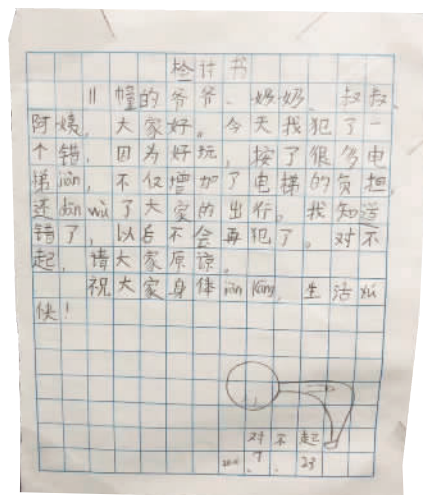 检讨书
11幢的爷爷、奶奶、叔叔、
阿姨，大家好。今天我犯了一
个错，因为好玩，按了很多电
梯jiàn，不仅增加了电梯的负担，
还dān wù了大家的出行。我知道
错了，以后不会再犯了。对不
起，请大家原谅。
祝大家身体jiàn kāng，生活yú
快！
对不起
7.23